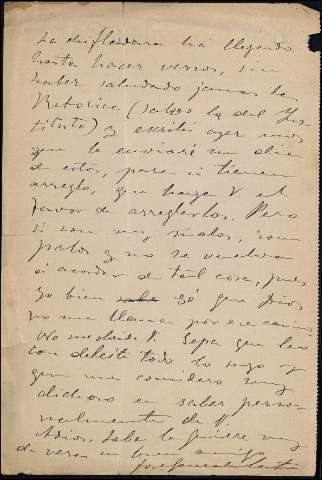 La chifladura ha llegado
hasta hacer versos, sin
haber saludado jamas la
Retorica (salvo la del Ins-
tituto) y escribi ayer unos
que le enviaré un dia
de estos, para si tienen
arreglo, que haga V. el
favor de arreglarlos. Pero
si son muy malos, rom-
palos y no se vuelva
á acordar de tal cosa, pues
yo bien sabe sé que Dios
no me llama por ese camino
No me olvide V. Sepa que leo
con deleite todo lo suyo y
que me considero muy
dichoso en saber perso-
nalmente de V.
Adios, sabe le quiere muy
de veras su buen amigo